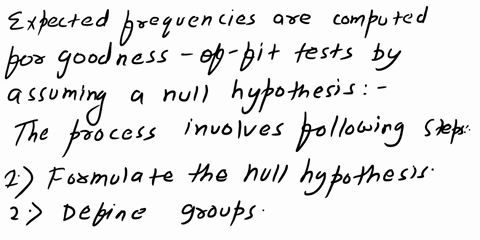 Expected frequencies are computed
for goodness-of-fit tests by
assuming a null hypothesis:-
The process involves following steps.
1.) Formulate the null hypothesis.
2.) Define groups.